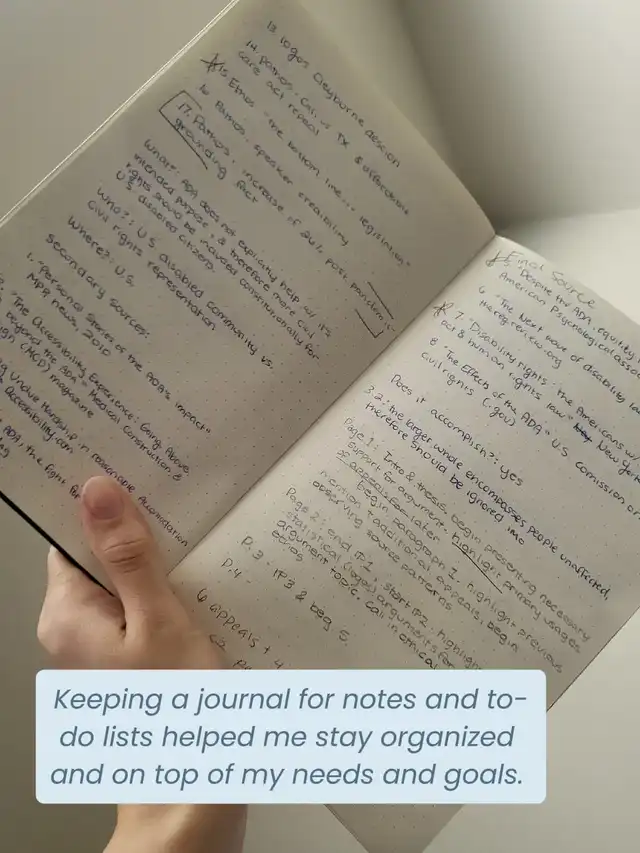 13. Logos
14. Pathos. Call w/ TX & affordable
care act repeal
15. Ethos "the bottom line... legislation"
16 Pathos. speaker credibility
17. Pathos. increase of 26% post pandemic.
grounding fact
What?: ADA does not explicitly help w/ it's
intended purpose, & therefore more civil
rights should be included constitutionally for
U.S. disabled citizens.
Who?: U.S. disabled community vs.
civil rights representation
Where?: U.S.
secondary sources:
1. "Personal Stories of the ADA's impact"
MPR news, 2010
"The Accessibility Experience: Going Above
& beyond the ADA" Medical Construction &
(MCD) magazine
Undue Hardship in reasonable Accomodation
Accessibility.com
ADA, the fight for
Final Source
5. "Despite the ADA, equity
American Psychological
6. "The Next wave of disability
theregreview.org
7. "Disability rights: the Americans w/
act & human rights law" New York
8. The Effects of the ADA" U.S. comission on
civil rights (.gov)
Does it accomplish?: yes
3.2: the larger whole encompasses people unaffected,
therefore should be ignored imo
Page 1: Intro & thesis, begin presenting necessary
support for argument, highlight primary usages
of appeals for later
begin paragraph 1. highlight previous
mention 1 additional appeals, begin
observing source patterns
Page 2: end P1, start P2, highlight
statistical (logos) arguments for
argument topic. call in ethical
P.3 - P3 & beg 5.
P.4 -
6 appeals + 4
Keeping a journal for notes and to-
do lists helped me stay organized
and on top of my needs and goals.